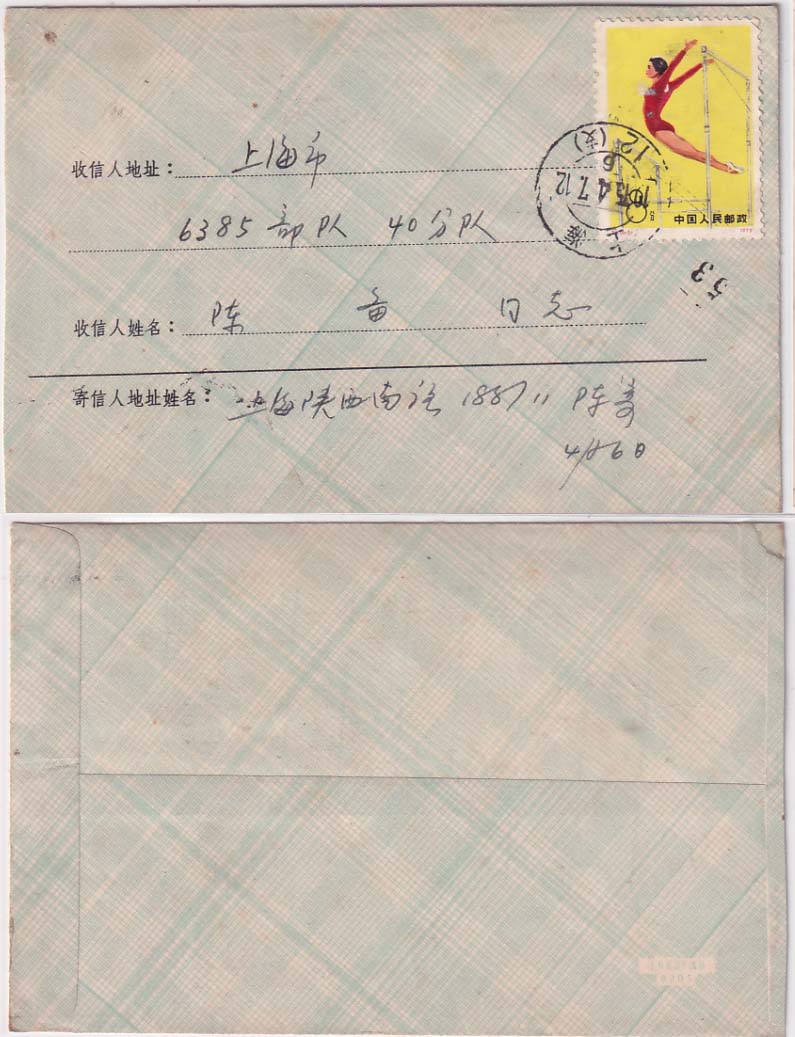 收信人地址：上海市
6385部队 40分队
收信人姓名：陈 备 同志
寄信人地址姓名：上海陕西南路 1887 11 陈
4月6日
中国人民邮政
上海
75.4.7.12
12(支)
6
53